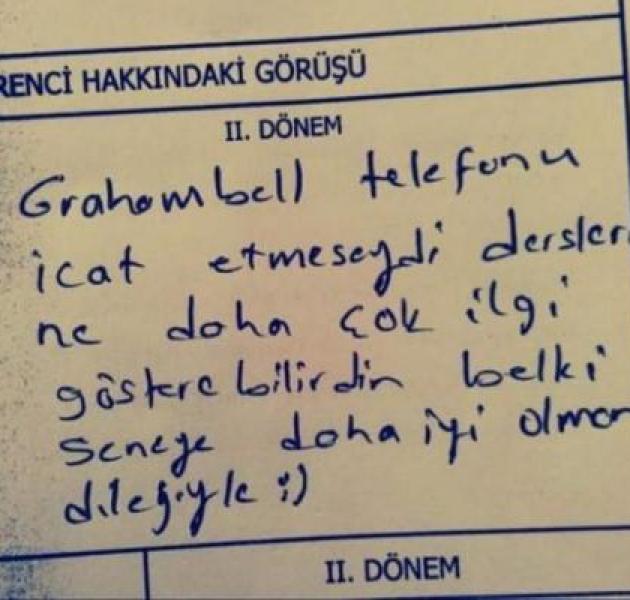 RENCİ HAKKINDAKİ GÖRÜŞÜ
II. DÖNEM
Grahambell telefonu
icat etmeseydi dersler
ne daha çok ilgi
gösterebilirdin belki
Seneye daha iyi olman
dileğiyle :)
II. DÖNEM